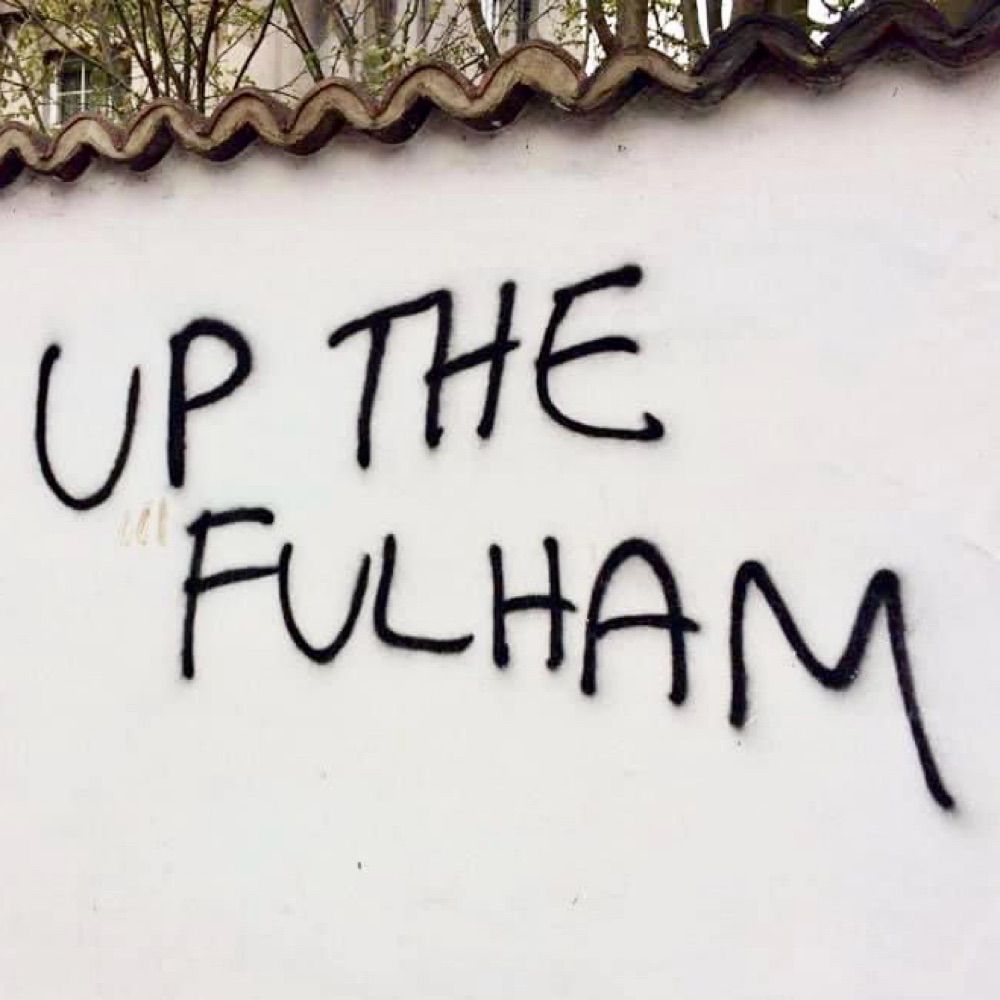 UP THE
FULHAM